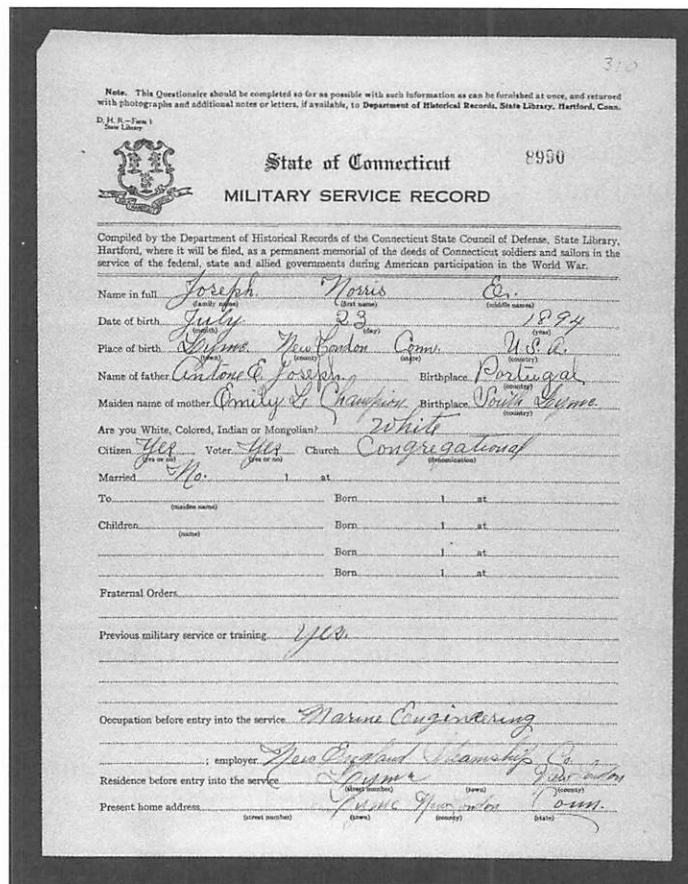 310
Note. This Questionaire should be completed so far as possible with such information as can be furnished at once, and returned
with photographs and additional notes or letters, if available, to Department of Historical Records, State Library, Hartford, Conn.
D. H. R.—Form 1
State Library
State of Connecticut 8990
MILITARY SERVICE RECORD
Compiled by the Department of Historical Records of the Connecticut State Council of Defense, State Library,
Hartford, where it will be filed, as a permanent memorial of the deeds of Connecticut soldiers and sailors in the
service of the federal, state and allied governments during American participation in the World War.
Name in full Joseph. Norris E.
(family name) (first name) (middle names)
Date of birth July 23 1894
(month) (day) (year)
Place of birth Lyme New London Conn. U.S.A.
(town) (county) (state) (country)
Name of father Antone E. Joseph Birthplace Portugal
(country)
Maiden name of mother Emily Le Champion Birthplace South Lyme
(country)
Are you White, Colored, Indian or Mongolian? White
Citizen Yes Voter Yes Church Congregational
(yes or no) (yes or no) (denomination)
Married No. 1 at
To Born 1 at
(maiden name)
Children Born 1 at
(name)
Born 1 at
Born 1 at
Fraternal Orders
Previous military service or training yes.
Occupation before entry into the service Marine Engineering
; employer New England Steamship Co.
Residence before entry into the service Lyme New London
(street number) (town) (county)
Present home address Lyme New London Conn.
(street number) (town) (county) (state)